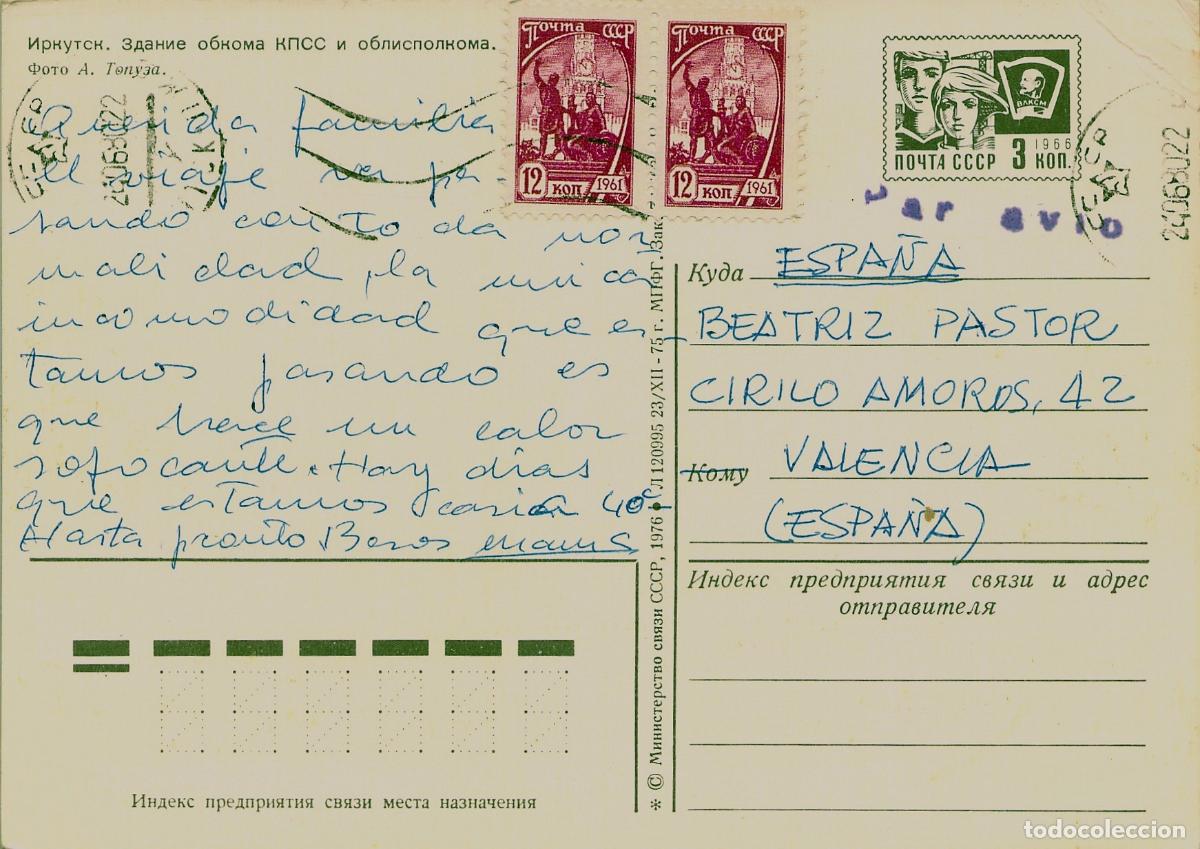 Иркутск. Здание обкома КПСС и облисполкома.
Фото А. Топуза.
Querida familia
el viaje va pa-
sando con toda nor
malidad, la unica
incomodidad que es-
tamos pasando es
que hace un calor
sofocante. Hay días
que estamos casi a 40º-
Hasta pronto. Besos mamá
Индекс предприятия связи места назначения
* © Министерство связи СССР, 1976 • Л120995 23/XII-75 г. МПФГ. Зак.
Почта СССР
12 коп 1961
Почта СССР
12 коп 1961
ВЛКСМ
1966
ПОЧТА СССР 3 КОП.
СССР
24068022
СССР
24068022
Par avio
Куда ESPAÑA
BEATRIZ PASTOR
CIRILO AMOROS, 42
Кому VALENCIA
(ESPAÑA)
Индекс предприятия связи и адрес
отправителя
todocoleccion